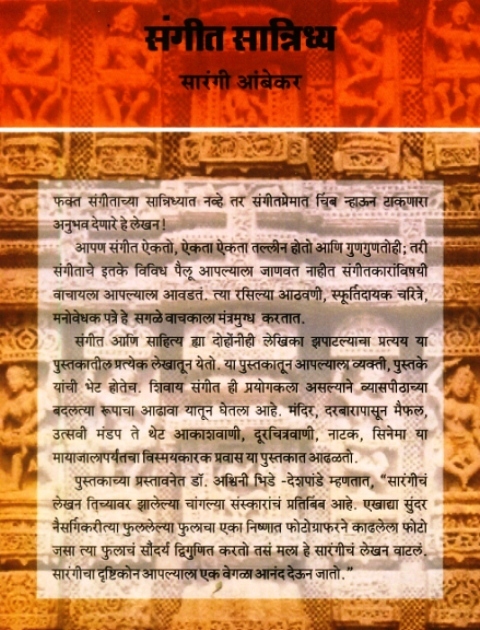 संगीत सान्निध्य
सारंगी आंबेकर
फक्त संगीताच्या सान्निध्यात नव्हे तर संगीतप्रेमात चिंब न्हाऊन टाकणारा
अनुभव देणारे हे लेखन!
आपण संगीत ऐकतो, ऐकता ऐकता तल्लीन होतो आणि गुणगुणतोही; तरी
संगीताचे इतके विविध पैलू आपल्याला जाणवत नाहीत संगीतकारांविषयी
वाचायला आपल्याला आवडतं. त्या रसिल्या आठवणी, स्फूर्तिदायक चरित्रे,
मनोवेधक पत्रे हे सगळे वाचकाला मंत्रमुग्ध करतात.
संगीत आणि साहित्य ह्या दोहोंनीही लेखिका झपाटल्याचा प्रत्यय या
पुस्तकातील प्रत्येक लेखातून येतो. या पुस्तकातून आपल्याला व्यक्ती, पुस्तके
यांची भेट होतेच. शिवाय संगीत ही प्रयोगकला असल्याने व्यासपीठाच्या
बदलत्या रूपाचा आढावा यातून घेतला आहे. मंदिर, दरबारापासून मैफल,
उत्सवी मंडप ते थेट आकाशवाणी, दूरचित्रवाणी, नाटक, सिनेमा या
मायाजालापर्यंतचा विस्मयकारक प्रवास या पुस्तकात आढळतो.
पुस्तकाच्या प्रस्तावनेत डॉ. अश्विनी भिडे -देशपांडे म्हणतात, “सारंगीचं
लेखन तिच्यावर झालेल्या चांगल्या संस्कारांचं प्रतिबिंब आहे. एखाद्या सुंदर
नैसर्गिकरीत्या फुललेल्या फुलाचा एका निष्णात फोटोग्राफरने काढलेला फोटो
जसा त्या फुलाचं सौंदर्य द्विगुणित करतो तसं मला हे सारंगीचं लेखन वाटलं.
सारंगीचा दृष्टिकोन आपल्याला एक वेगळा आनंद देऊन जातो.”